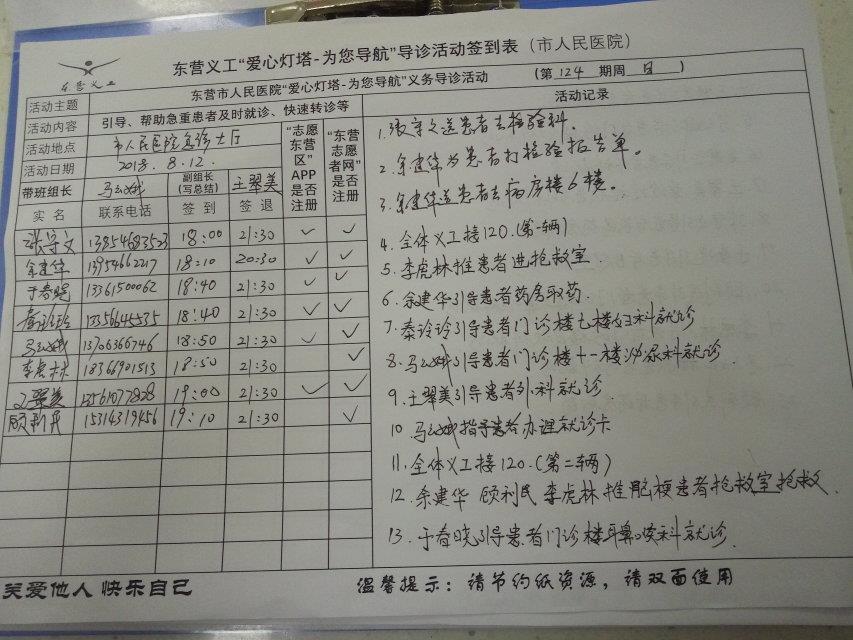 东营义工
东营义工“爱心灯塔-为您导航”导诊活动签到表（市人民医院）
活动主题 东营市人民医院“爱心灯塔-为您导航”义务导诊活动 （第 124 期周 日 ）
活动内容 引导、帮助急重患者及时就诊、快速转诊等
活动地点 市人民医院急诊大厅
活动日期 2018.8.12.
带班组长 马以娥 副组长（写总结） 王翠美
“志愿东营区”APP是否注册
“东营志愿者网”是否注册
实名 联系电话 签到 签退
张宇文 13854683523 18:00 21:30 ✓ ✓
余建华 13954662217 18:10 20:30 ✓ ✓
于春晓 13361500062 18:40 21:30 ✓ ✓
秦泠泠 13356645535 18:40 21:30 ✓ ✓
马以娥 13706366746 18:50 21:30 ✓ ✓
李虎林 18366901513 18:50 21:30 ✓
王翠美 13561077828 19:00 21:30 ✓ ✓
顾利民 15314319456 19:10 21:30 ✓
活动记录
1.张宇文送患者去检验科.
2.余建华为患者打检验报告单。
3.余建华送患者去病房楼6楼。
4.全体义工接120.(第一辆)
5.李虎林推患者进抢救室.
6.余建华引导患者药房取药.
7.秦泠泠引导患者门诊楼七楼妇科就诊
8.马以娥引导患者门诊楼十一楼泌尿科就诊
9.王翠美引导患者外科就诊
10.马以娥指导患者办理就诊卡
11.全体义工接120.(第二辆)
12.余建华 顾利民 李虎林推脑梗患者抢救室抢救.
13.于春晓引导患者门诊楼耳鼻喉科就诊.
关爱他人 快乐自己
温馨提示：请节约纸资源，请双面使用